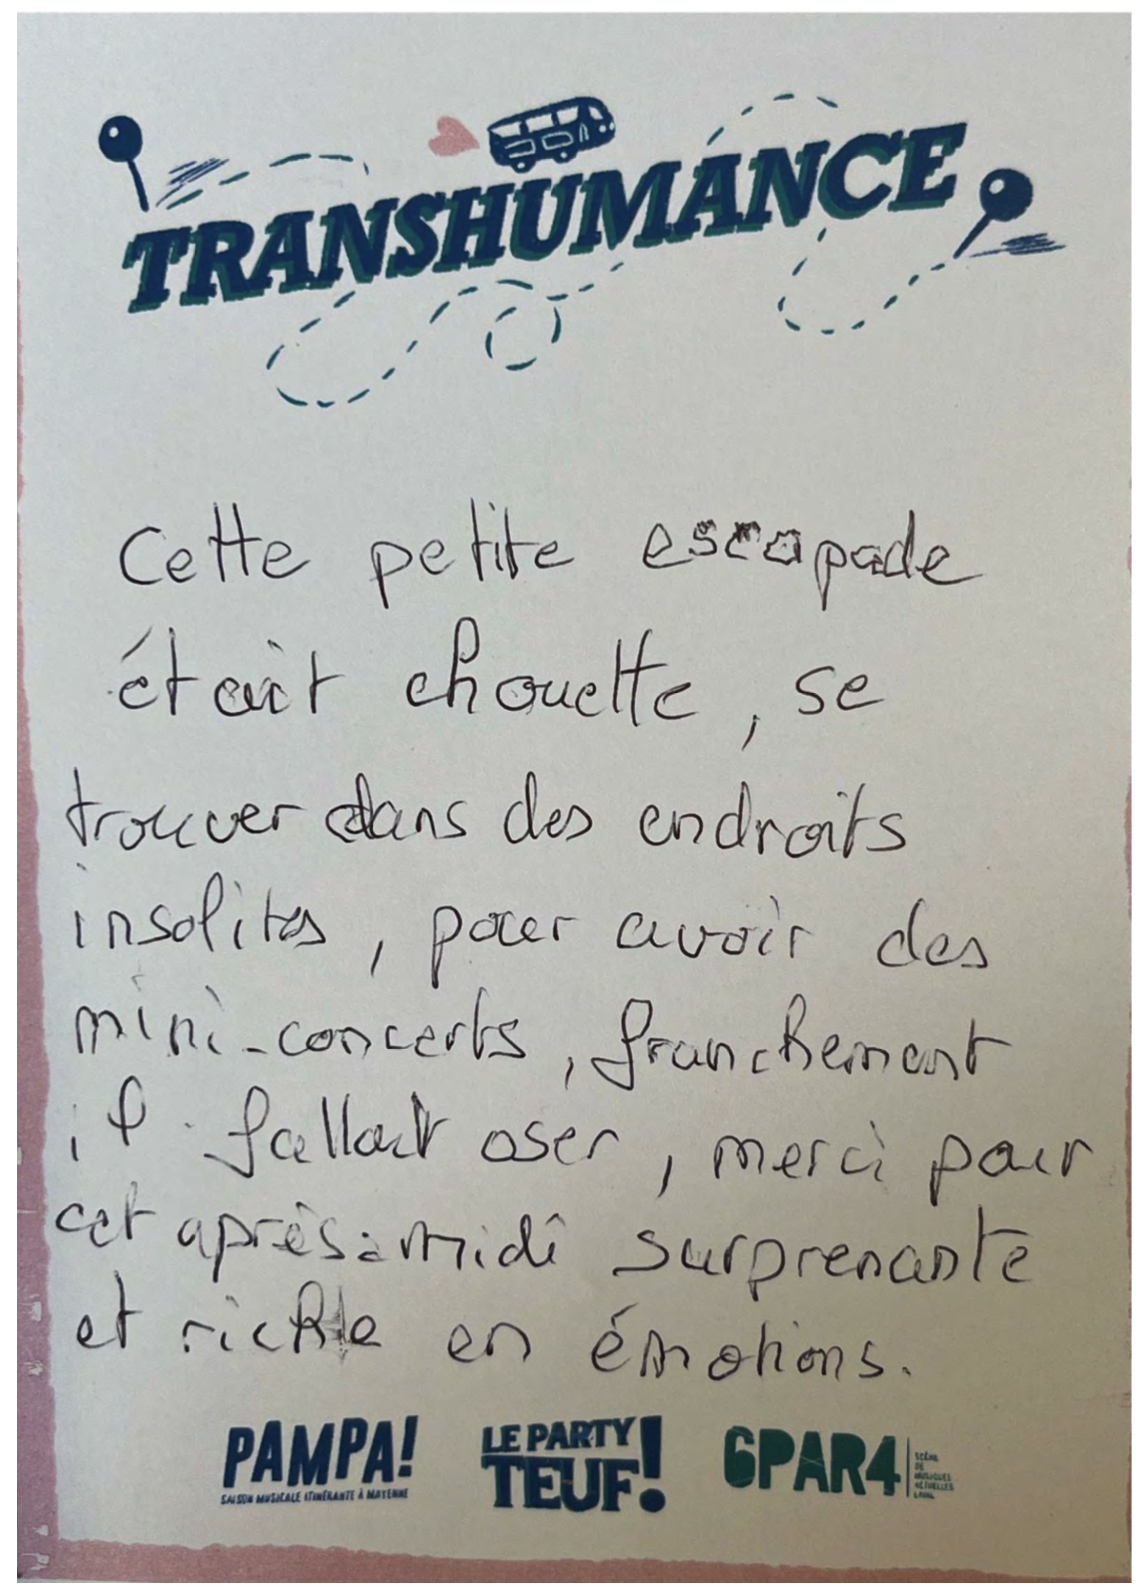 TRANSHUMANCE
Cette petite escapade
était chouette, se
trouver dans des endroits
insolites, pour avoir des
mini-concerts, franchement
il fallait oser, merci pour
cet après-midi surprenante
et riche en émotions.
PAMPA!
SAISON MUSICALE ITINÉRANTE À MAYENNE
LE PARTY
TEUF!
6PAR4
SCÈNE
DE
MUSIQUES
ACTUELLES
LAVAL